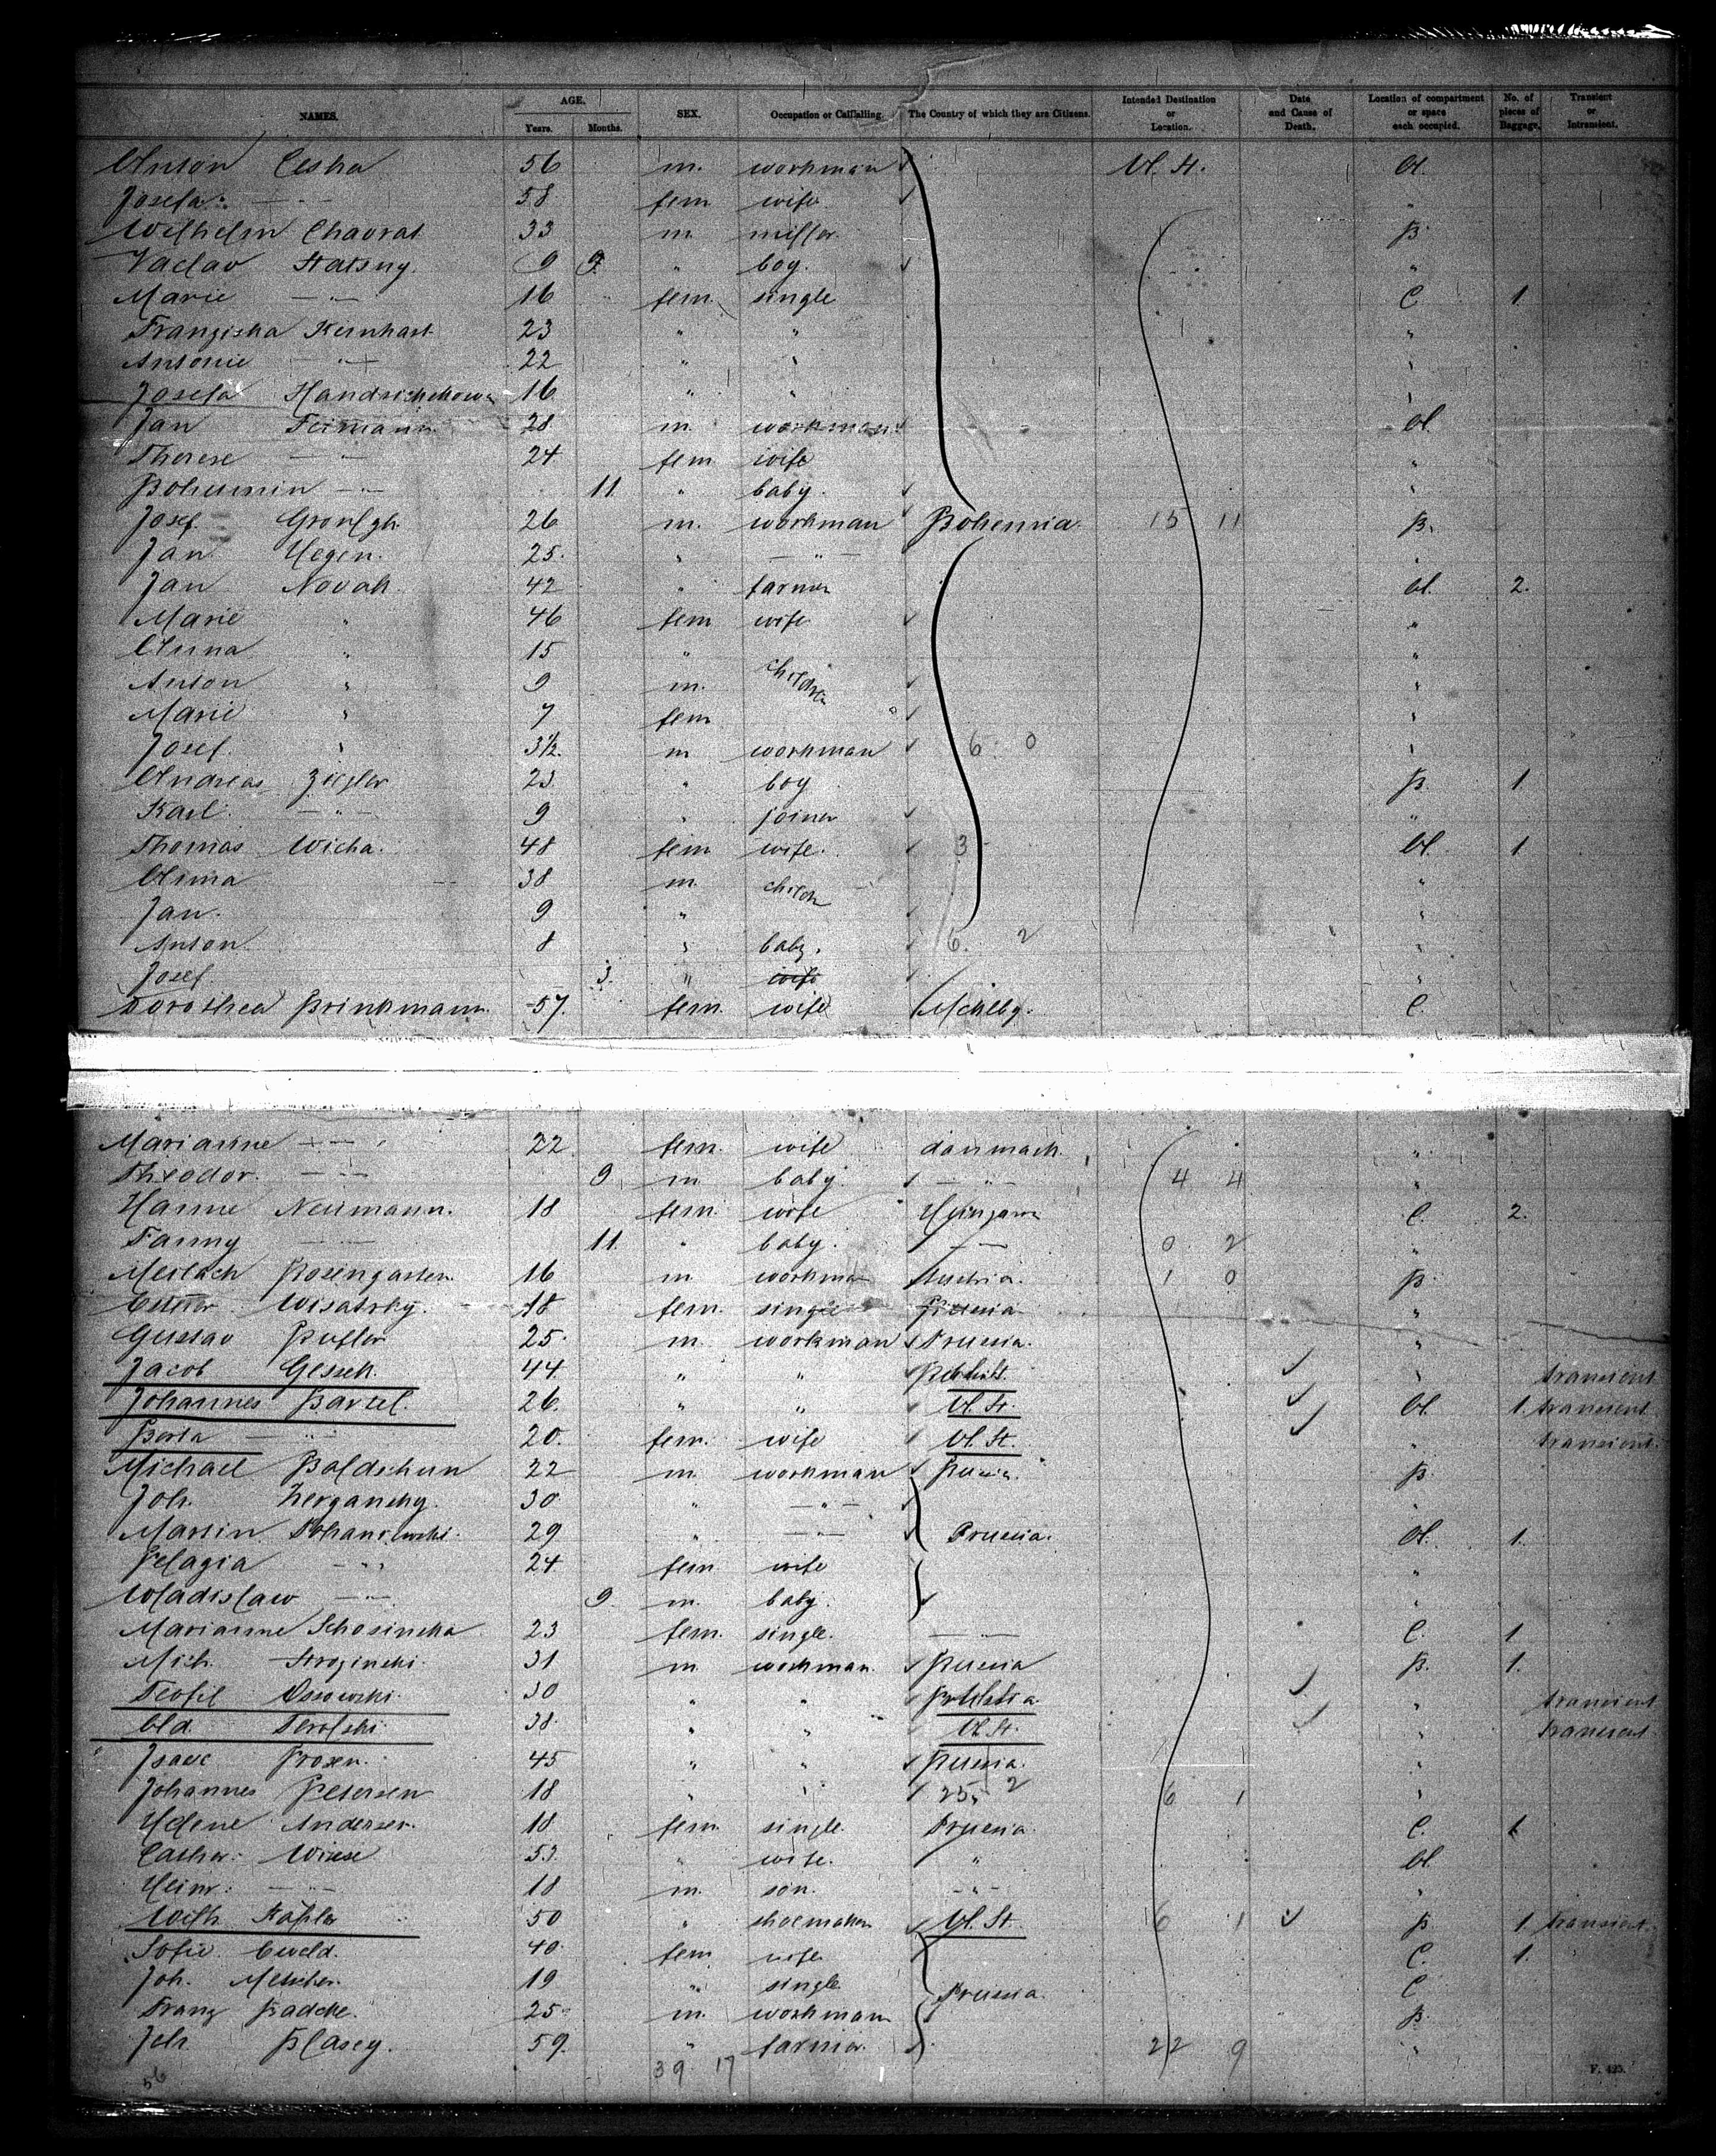 NAMES. AGE. Years. Months. SEX. Occupation or Callalling. The Country of which they are Citizens. Intended Destination or Location. Date and Cause of Death. Location of compartment or space each occupied. No. of pieces of Baggage. Transient or Intransient.
Anton Ceska 56 m. workman U. St. A.
Josefa — " — 58 fem wife "
Wilhelm Chavrat 33 m. miller B.
Vaclav Statsny. 9 9. " boy. "
Marie — " — 16 fem. single C 1.
Franziska Kernhart 23 " " "
Antonie — " — 22 " " "
Josefa 16 " "
Jan Feimann 28 m. workman A.
Therese — " — 24 fem wife "
Bohumin — " — 11. " baby. "
Josef 26 m. workman Bohemia 15 11 B.
Jan Hegen. 25. " — " — "
Jan Novak 42 " farmer A. 2.
Marie " 46 fem wife "
Anna " 15 " "
Anton " 9 m. children "
Marie " 7 fem "
Josef. " 3½. m workman 6 0 "
Andreas Ziegler 23 " boy B. 1
Karl — " — 9 " joiner "
Thomas Wicha. 48 fem wife. 3 A. 1
Anna 38 m. childr "
Jan. 9 " "
Anton 8 " baby. 6. 2 "
Josef 3. " wife "
Dorothea Brinkmann. 57. fem. wife Mcklbg. C.
Marianne — " — 22 fem. wife danmark "
Theodor. — " — 9 m. baby. — " — 4 4 "
Hanne Neumann. 18 fem. wife C. 2.
Fanny — " — 11. " baby. — " — 0 2 "
Meilach Rosengarten 16 m. workman Austria. 1 0 B.
Wisatsky. 18 fem. single "
Gustav 25. m. workman Prussia. "
Jacob Gessek. 44. " " " transient
Johannes Bartel. 26. " " U. St. A. 1. transient
Berta — " — 20. fem. wife U. St. " transient.
Michael Baldschun 22 m. workman Russia. B.
Joh. 30 " — " — "
Martin 29 " — " — Prussia. A. 1.
Pelagia — " — 24 fem. wife "
Wladislaw — " — 9 m. baby. "
Marianne Schosinska 23 fem. single. — " — C. 1
Mich. Stroginski. 31 m. workman. Russia B. 1.
Teofil Ossowski. 30 " " " transient
38. " " U. St. " transient.
Isaac Prosen. 45 " " Russia. "
Johannes Petersen 18 " " 25 2 6 1 "
Helene Andersen. 18 fem. single. Prussia. C. 1
Cathar: Wiese 53. " wife. " A.
Heinr: — " — 18 m. son. — " — "
Wilh. 50 " shoemaker U. St. 6 1 B. 1. transient.
Sofie Ewald. 40. fem wife. C. 1.
Joh. 19 " single Prussia. C
Franz Radcke. 25. m. workman B.
Joh. Blasey. 59. " farmer. 22 9 "
56 39 17 F. 423.